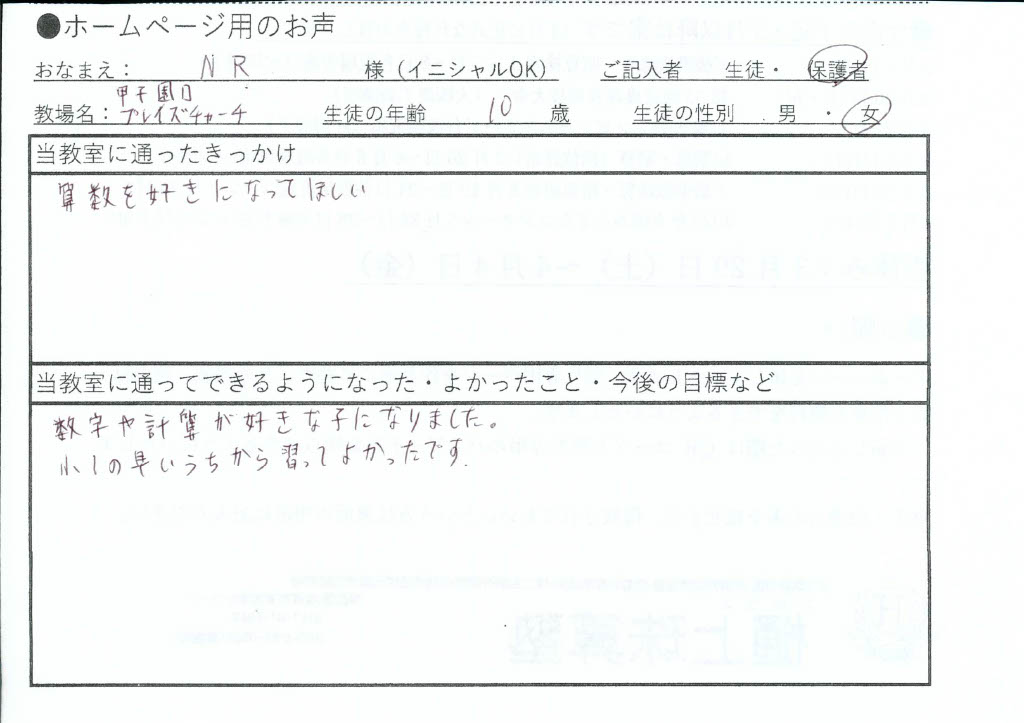 ●ホームページ用のお声
おなまえ： NR 様（イニシャルOK） ご記入者 生徒・保護者
甲子園口
教場名：プレイズチャーチ 生徒の年齢 10 歳 生徒の性別 男・女
当教室に通ったきっかけ
算数を好きになってほしい
当教室に通ってできるようになった・よかったこと・今後の目標など
数字や計算が好きな子になりました。
小1の早いうちから習ってよかったです.